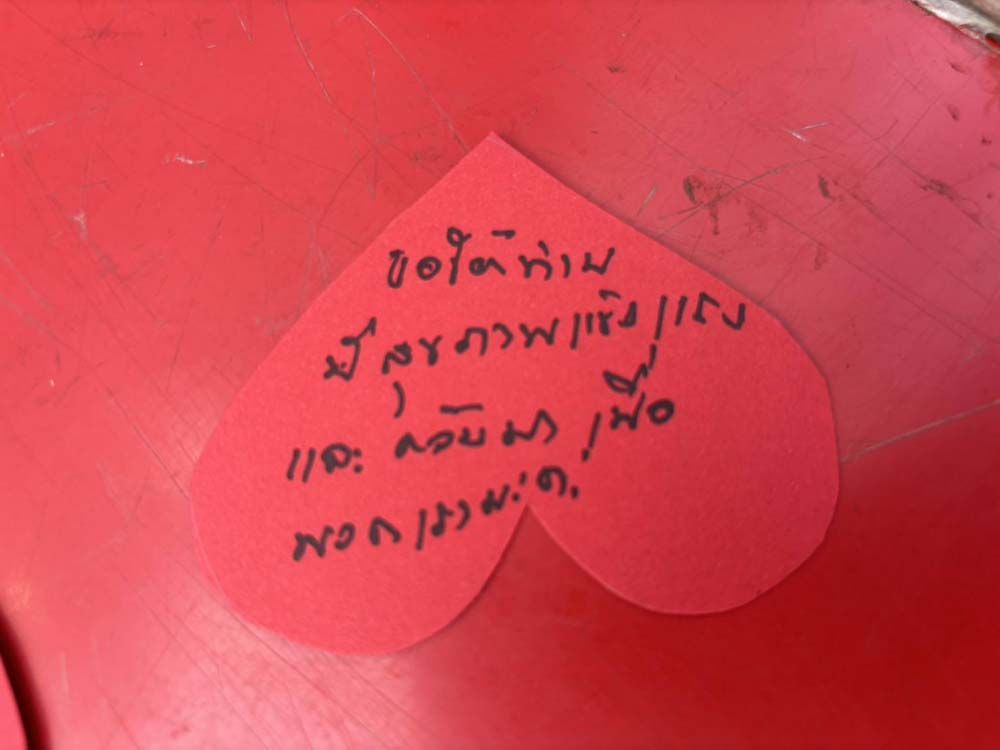 ขอให้ท่าน
มีสุขภาพแข็งแรง
และกลับมาเพื่อ
พวกเรานะคะ